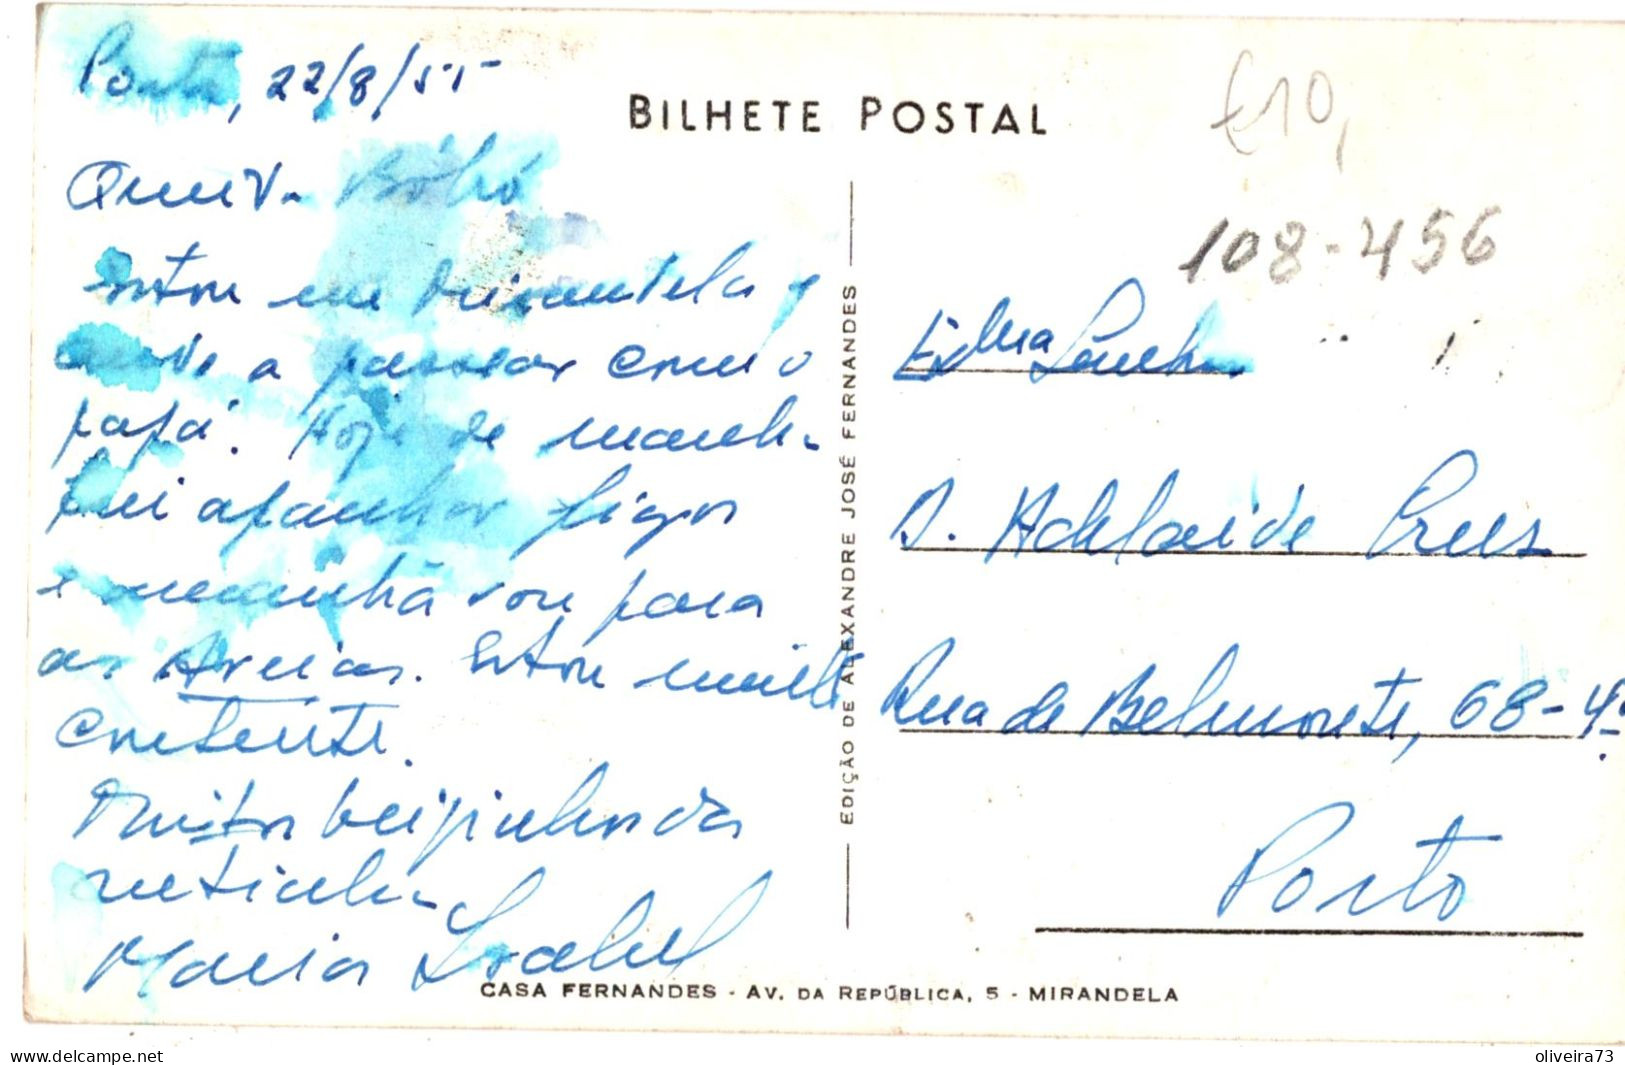 Porto, 22/8/55
BILHETE POSTAL
€10,
108-456
Estou em Mirandela e
a passear com o
papá. Hoje de manhã
fui apanhar figos
e amanhã vou para
as Areias. Estou muito
contente.
Muitos beijinhos da
netinha
Maria Isabel
EDIÇÃO DE ALEXANDRE JOSÉ FERNANDES
Exma Senhora
D. Adelaide
Rua de Belmonte, 68-4º
Porto
CASA FERNANDES - AV. DA REPÚBLICA, 5 - MIRANDELA
oliveira73